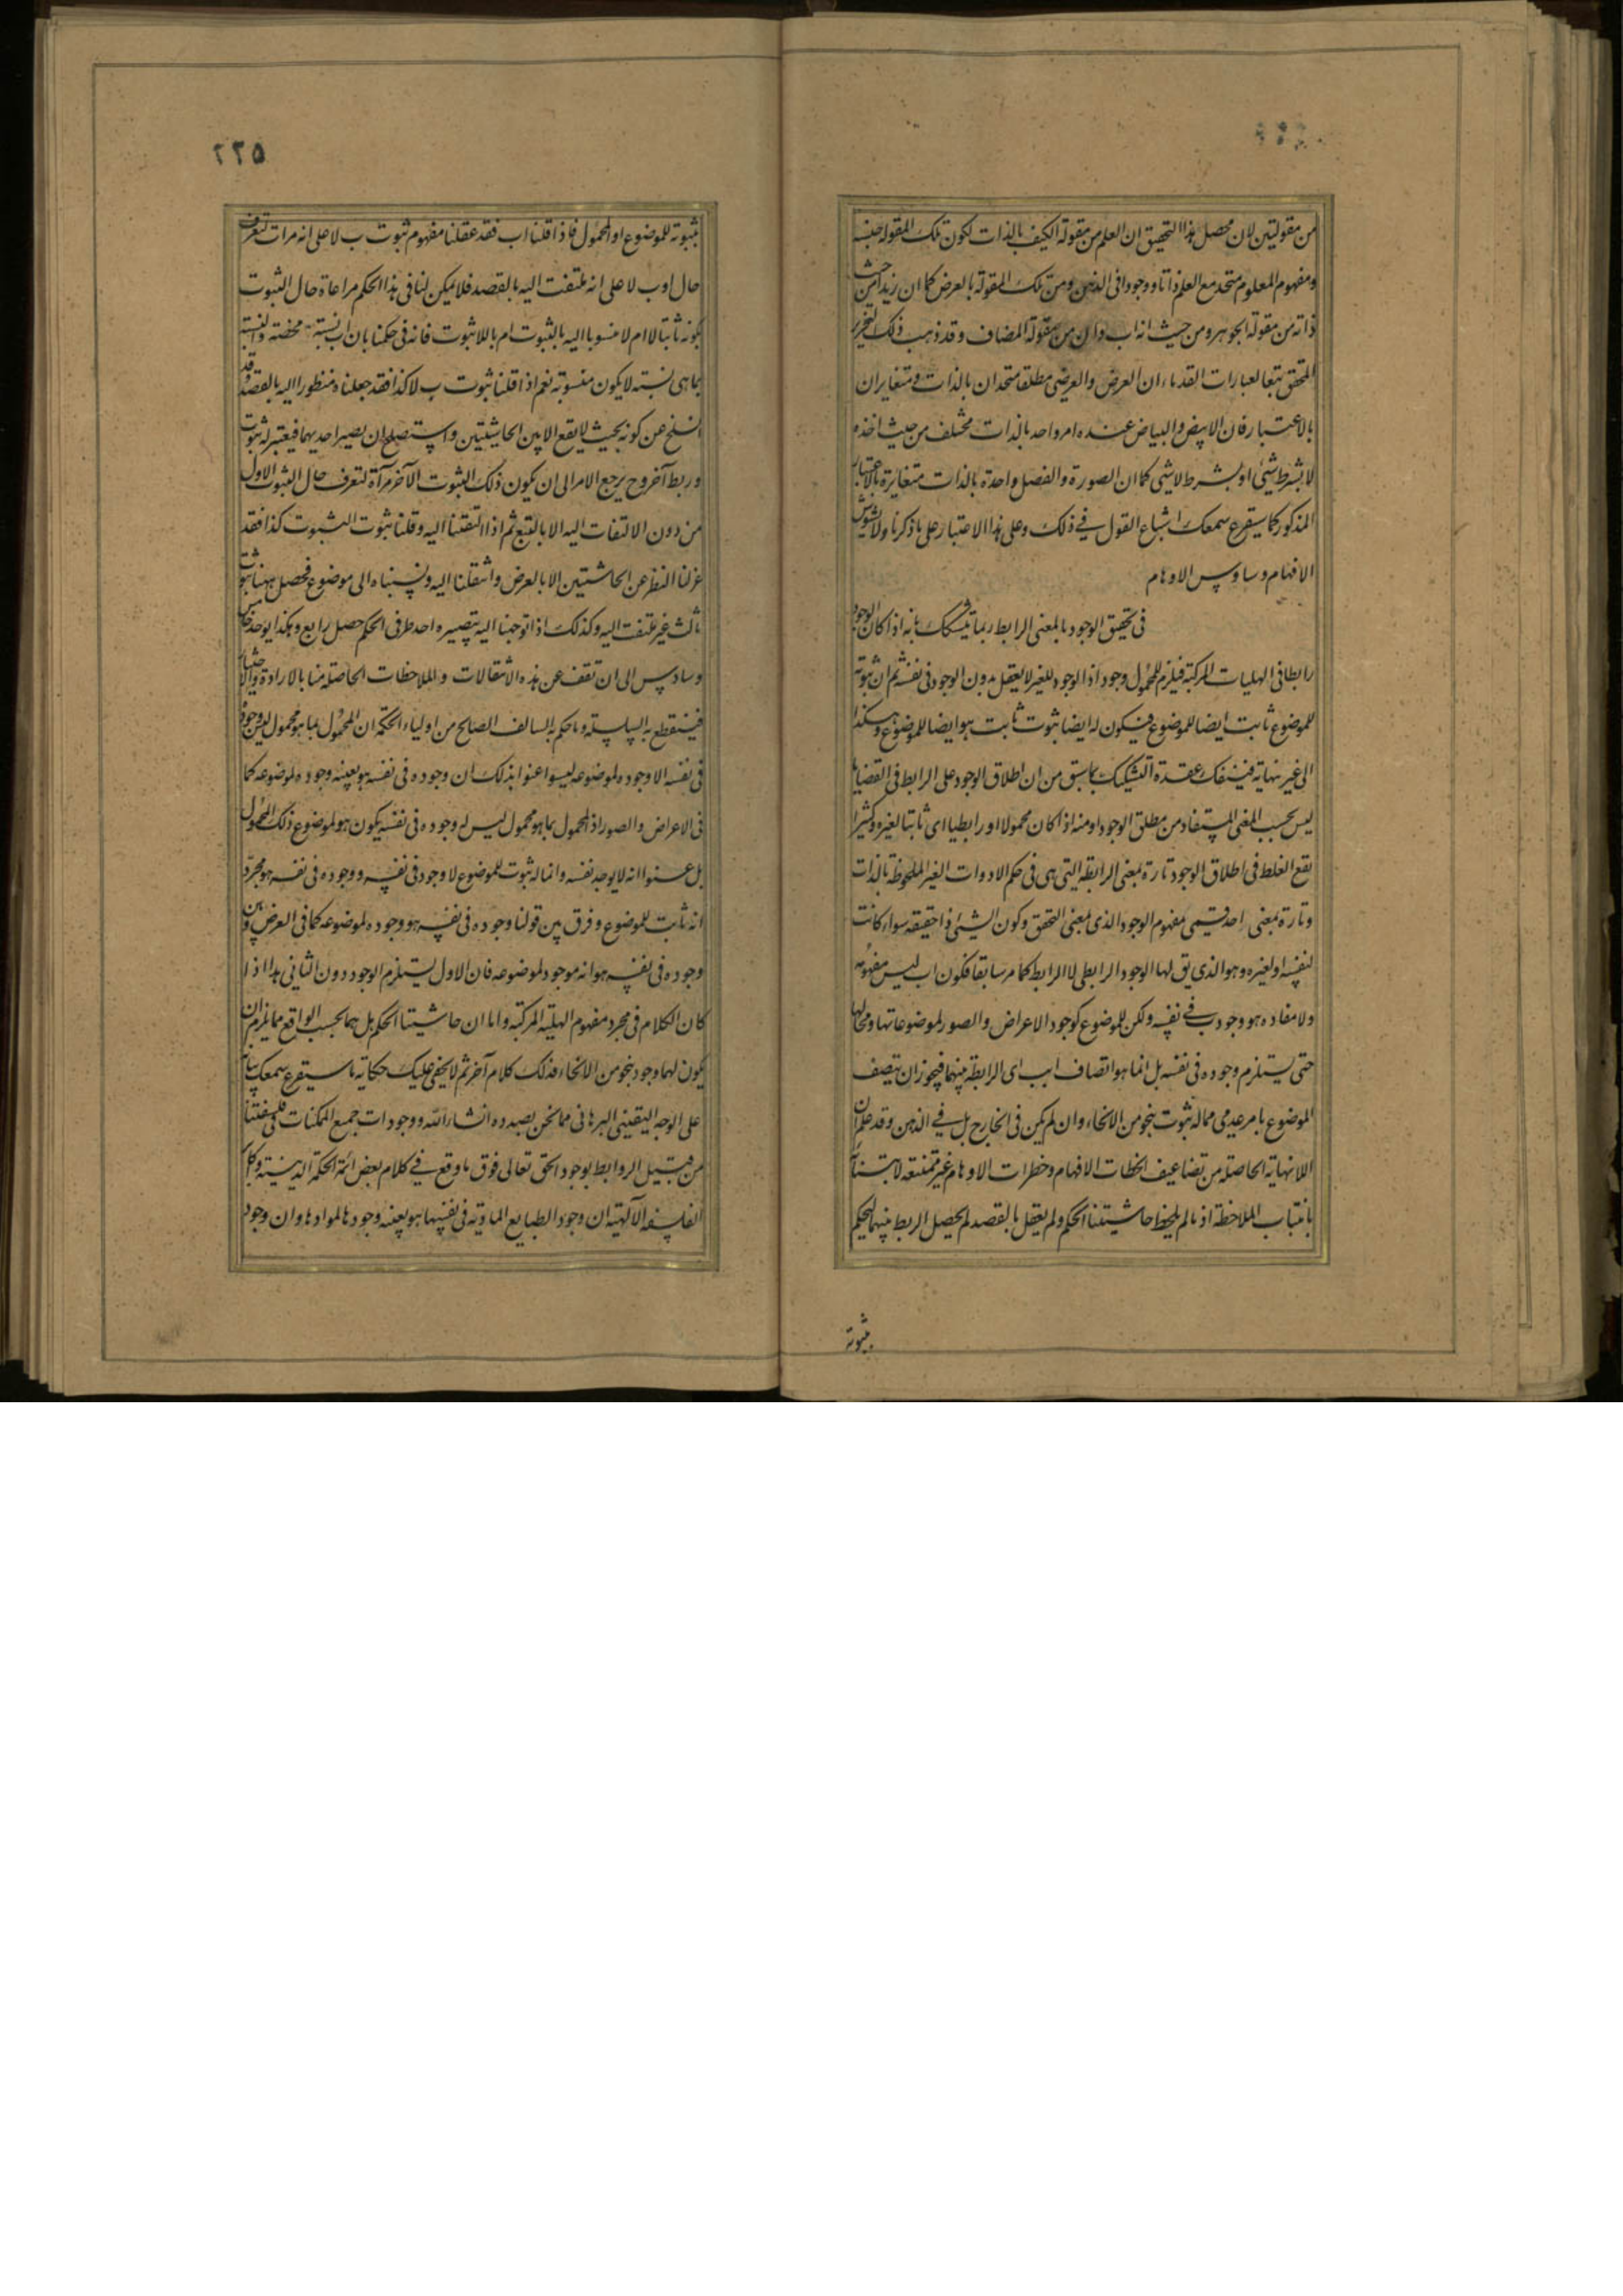 من مقولتين لان محصل هذا التحقيق ان العلم من مقولة الكيف بالذات لكون تلك المقولة جنسه
ومفهوم المعلوم متحد مع العلم ذاتا ووجودا فى الذهن ومن تلك المقولة بالعرض كما ان زيدا من حيث
ذاته من مقولة الجوهر ومن حيث انه اب من مقولة المضاف وقد ذهب ذلك النحرير
المحقق تبعا لعبارات القدماء ان العرض والعرضى مطلقا متحدان بالذات ومتغايران
بالاعتبار فان الابيض والبياض عنده امر واحد بالذات مختلف من حيث اخذه
لا بشرط شئ او بشرط لا شئ كما ان الصورة والفصل واحدة بالذات متغايرة بالاعتبار
المذكور كما سيقرع سمعك اشباع القول فے ذلك وعلى هذا الاعتبار على ما ذكرنا ولا يشوش
الافهام وساوس الاوهام
فى تحقيق الوجود بالمعنى الرابط ربما يتشكك بانه اذا كان الوجود
رابطا فى الهليات المركبة فيلزم للمحمول وجود اذ الوجود للغير لا يعقل بدون الوجود فى نفسه ثم ان ثبوته
للموضوع ثابت ايضا للموضوع فيكون له ايضا ثبوت ثابت هو ايضا للموضوع وهكذا
الى غير نهاية فينفك عقدة التشكيك بما سبق من ان اطلاق الوجود على الرابط فى القضايا
ليس بحسب المعنى المستفاد من مطلق الوجود او منه اذا كان محمولا او رابطيا اى ثابتا لغيره وكثيرا
يقع الغلط فى اطلاق الوجود تارة بمعنى الرابطة التى هى فى حكم الادوات الغير الملحوظة بالذات
وتارة بمعنى احد قسمى مفهوم الوجود الذى بمعنى التحقق وكون الشئ ذا حقيقة سواء كانت
لنفسه او لغيره وهو الذى يق لها الوجود الرابطى لا الرابط كما مر سابقا فكون اب ليس مفهومه
ولا مفاده هو وجود ب فے نفسه ولكن للموضوع كوجود الاعراض والصور لموضوعاتها ومحالها
حتى يستلزم وجوده فى نفسه بل انما هو اتصاف ا بب اى الرابطة بينهما فيجوز ان يتصف
الموضوع بامر عدمى مما له ثبوت بنحو من الانحاء وان لم يكن فى الخارج بل فے الذهن وقد علم ان
اللانهاية الحاصلة من تضاعيف لحظات الافهام وخطرات الاوهام غير ممتنعة لانبتاتها
بانبتات الملاحظة اذ ما لم يلحظ حاشيتا الحكم ولم يعقل بالقصد لم يحصل الربط بينهما للحكم
ثبوته
٢٢٥
ثبوته للموضوع او للمحمول فاذا قلنا ا ب فقد عقلنا مفهوم ثبوت ب لا على انه مرات لتعرف
حال ا و ب لا على انه ملتفت اليه بالقصد فلا يمكن لنا فى هذا الحكم مراعاة حال الثبوت
بكونه ثابتا لا ام لا منسوبا اليه بالثبوت ام باللاثبوت فانه فى حكمنا بان ا ب نسبة محضة والنسبة
بما هى نسبة لا يكون منسوبة نعم اذا قلنا ثبوت ب لا كذا فقد جعلناه منظورا اليه بالقصد وقد
انسلخ عن كونه بحيث لا يقع الا بين الحاشيتين واستصلح ان يصير احديهما فيعتبر له ثبوت
وربط آخر وح يرجع الامر الى ان يكون ذلك الثبوت الآخر مرآة لتعرف حال الثبوت الاول
من دون الالتفات اليه الا بالتبع ثم اذا التفتنا اليه وقلنا ثبوت الثبوت كذا فقد
عزلنا النظر عن الحاشيتين الا بالعرض وانتقلنا اليه ونسبناه الى موضوع فحصل ههنا ثبوت
ثالث غير ملتفت اليه وكذلك اذا توجهنا اليه بتصييره احد طرفى الحكم حصل رابع وهكذا يوجد خامس
وسادس الى ان تقف عن هذه الانتقالات والملاحظات الحاصلة منا بالارادة والاختيار
فينقطع به السلسلة وما حكم به السالف الصالح من اولياء الحكمة ان المحمول بما هو محمول ليس وجوده
فى نفسه الا وجوده لموضوعه ليسوا عنوا بذلك ان وجوده فى نفسه هو بعينه وجوده لموضوعه كما
فى الاعراض والصور اذ المحمول بما هو محمول ليس له وجوده فى نفسه يكون هو لموضوع ذلك المحمول
بل عنوا انه لا يوجد نفسه وانما له ثبوت للموضوع لا وجود فى نفسه ووجوده فى نفسه هو مجرد
انه ثابت للموضوع وفرق بين قولنا وجوده فى نفسه هو وجوده لموضوعه كما فى العرض وبين
وجوده فى نفسه هو انه موجود لموضوعه فان الاول يستلزم الوجود دون الثانى هذا اذا
كان الكلام فى مجرد مفهوم الهلية المركبة واما ان حاشيتا الحكم بل هما بحسب الواقع مما يلزم ان
يكون لهما وجود بنحو من الانحاء فذلك كلام آخر ثم لا يخفى عليك حكاية ما سيقرع سمعك بيانه
على الوجه اليقينى البرهانى مما نحن بصدده انشاء الله ووجودات جميع الممكنات فى فلسفتنا
من قبيل الروابط بوجود الحق تعالى فوق ما وقع فے كلام بعض ائمة الحكمة الدينية وكل
الفلسفة الآلهية ان وجود الطبايع المادية فى نفسها هو بعينه وجودها لموادها وان وجود